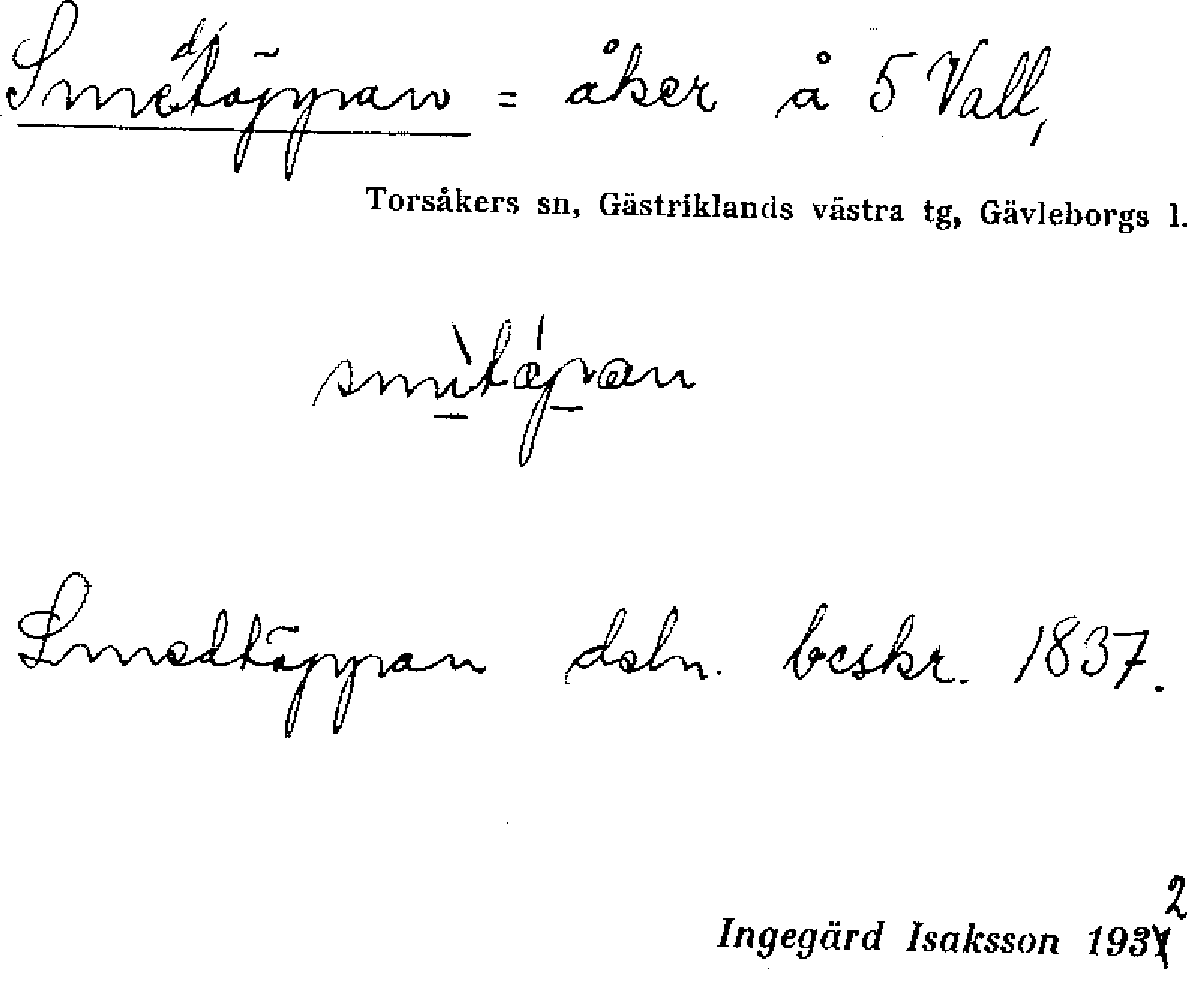 Smedtäppan = åker å 5 Vall,
Torsåkers sn, Gästriklands västra tg, Gävleborgs l.
smìtǽpan
Smedtäppan dsln. beskr. 1837.
Ingegärd Isaksson 1932